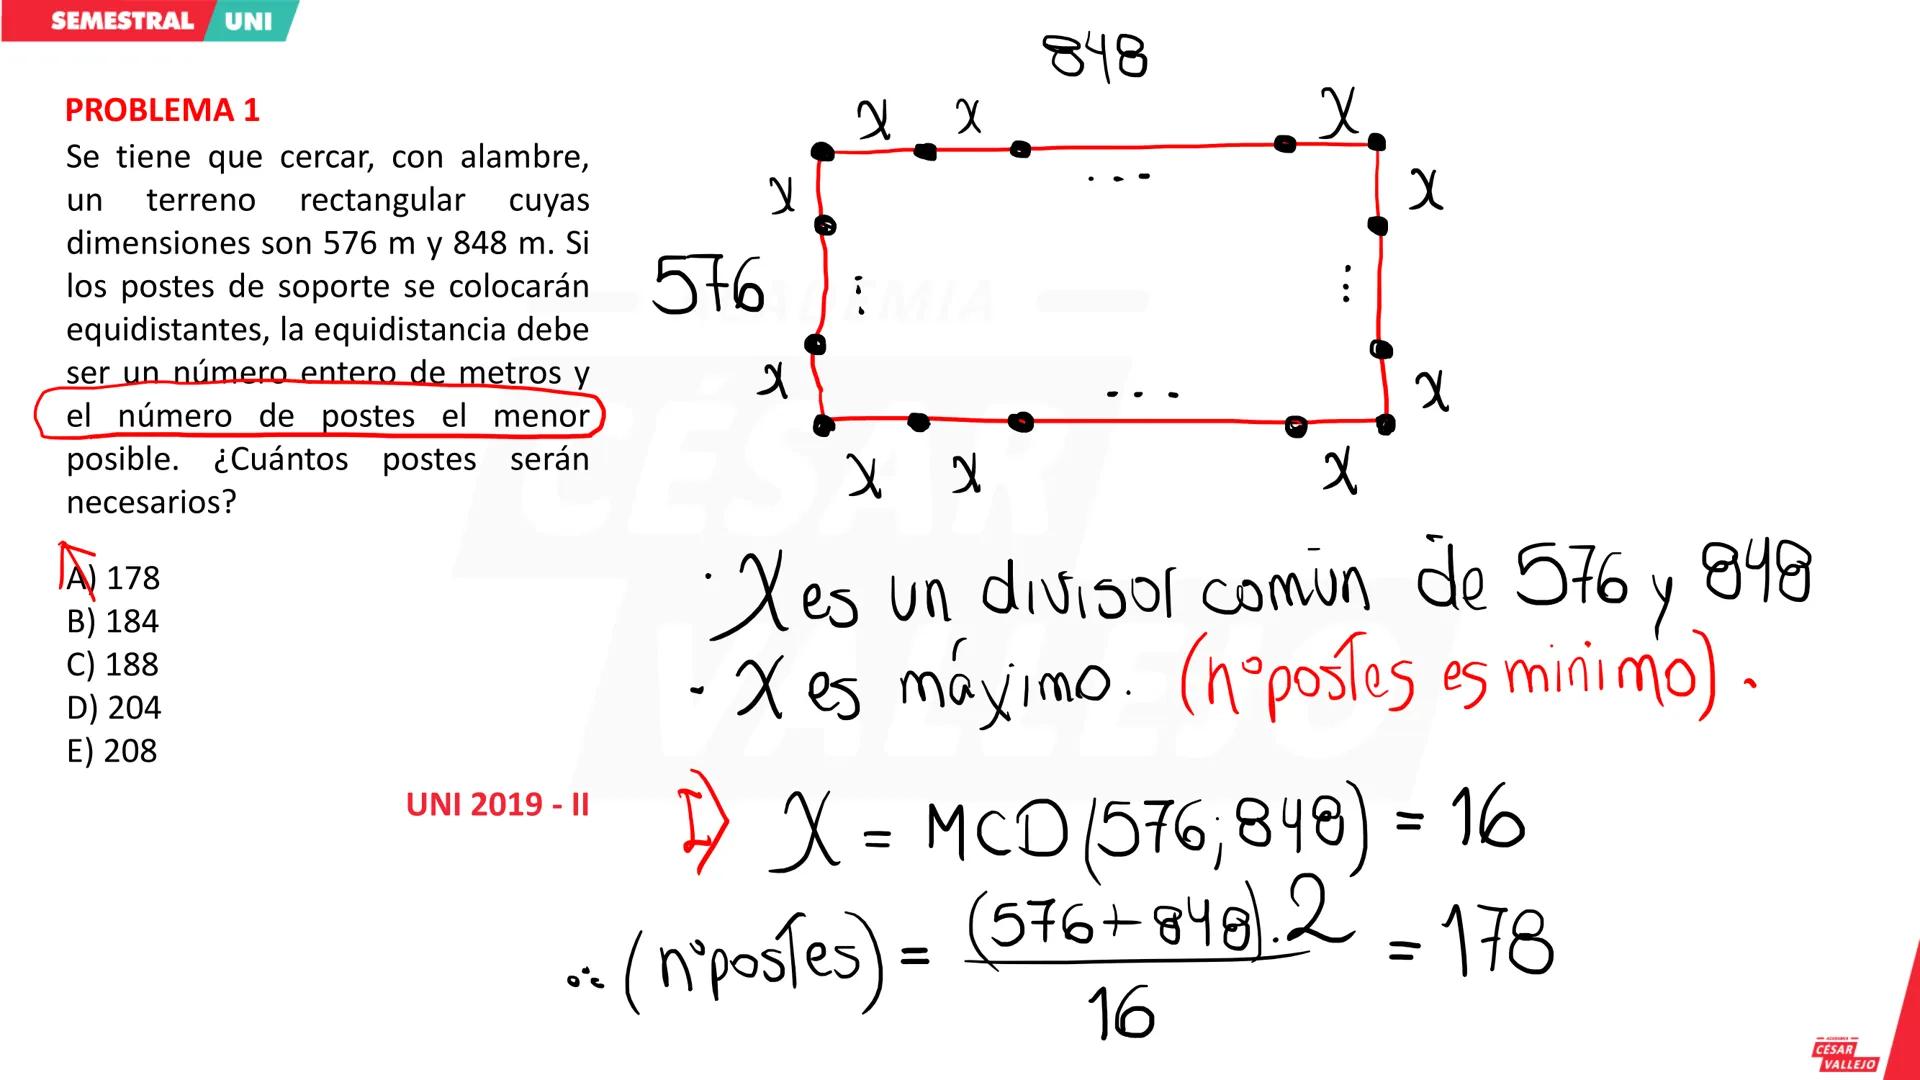 SEMESTRAL UNI
PROBLEMA 1
Se tiene que cercar, con alambre,
un terreno rectangular cuyas
dimensiones son 576 m y 848 m. Si
los postes de soporte se colocarán
equidistantes, la equidistancia debe
ser un número entero de metros y
el número de postes el menor
posible. ¿Cuántos postes serán
necesarios?
A) 178
B) 184
C) 188
D) 204
E) 208
UNI 2019 - II
848
x x x
x x
576
x x
x x x
...
⋮ ⋮
...
· X es un divisor común de 576 y 848
- X es máximo. (n° postes es minimo).
I) X = MCD(576; 848) = 16
∴ (n° postes) = (576+848).2 = 178
16
ACADEMIA
CÉSAR
VALLEJO
ACADEMIA
CÉSAR
VALLEJO